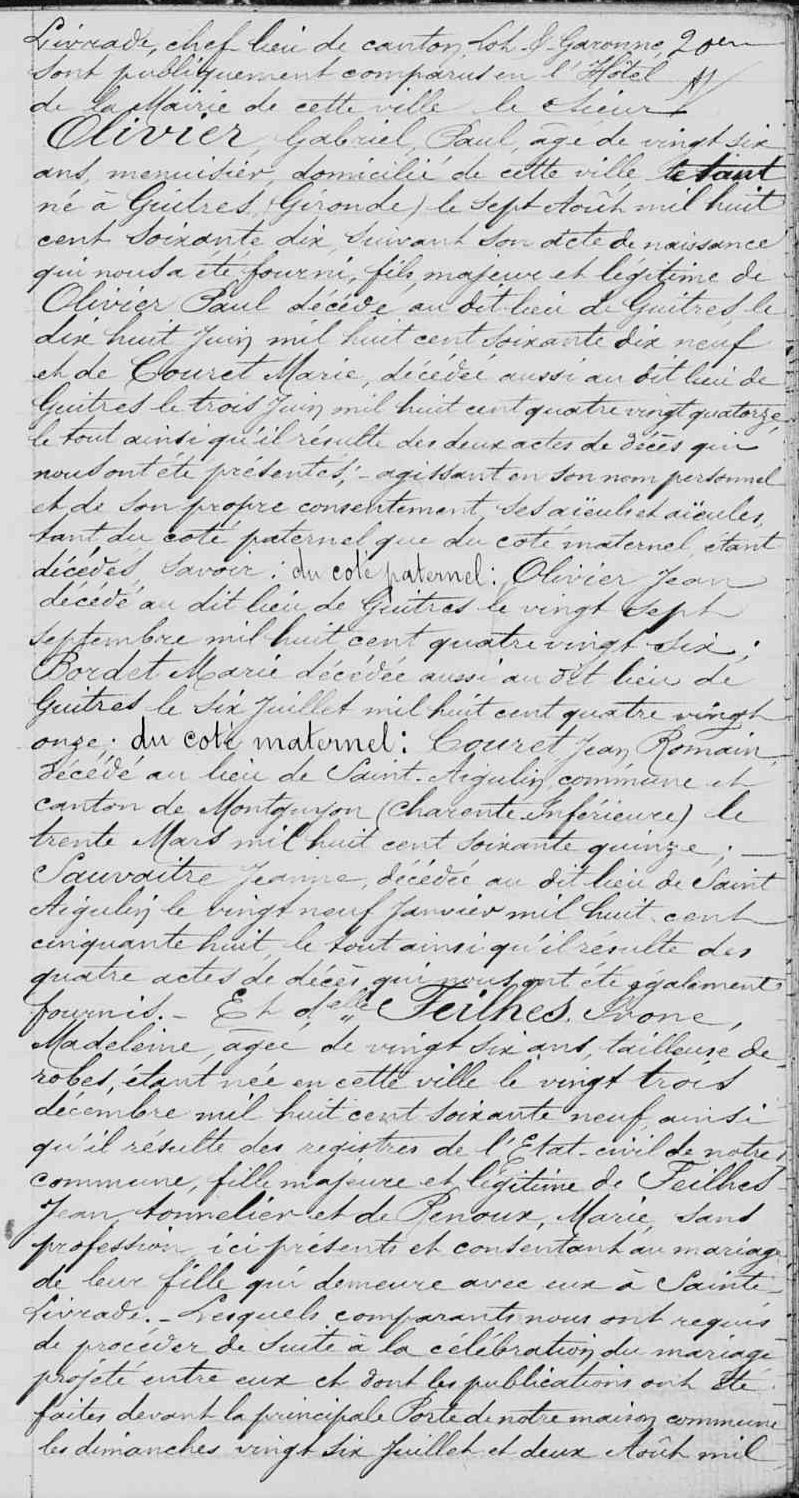 Livrade, chef lieu de canton, Lot-&-Garonne,
sont publiquement comparus en l'Hôtel
de la Mairie de cette ville le sieur
Olivier, Gabriel, Paul, âgé de vingt six
ans, menuisier, domicilié de cette ville,
né à Guîtres, (Gironde) le sept Août mil huit
cent soixante dix, suivant son acte de naissance
qui nous a été fourni, fils majeur et légitime de
Olivier Paul décédé au dit lieu de Guitres le
dix huit Juin mil huit cent soixante dix neuf
et de Couret Marie, décédée aussi au dit lieu de
Guitres le trois Juin mil huit cent quatre vingt quatorze,
le tout ainsi qu'il résulte des deux actes de décès qui
nous ont été présentés; - agissant en son nom personnel
et de son propre consentement, ses aïeuls et aïeules,
tant du coté paternel que du coté maternel, étant
décédés, savoir: du coté paternel: Olivier Jean
décédé au dit lieu de Guitres le vingt sept
septembre mil huit cent quatre vingt six;
Bordet Marie décédée aussi au dit lieu de
Guitres le six Juillet mil huit cent quatre vingt
onze; du coté maternel: Couret, Jean Romain,
décédé au lieu de Saint-Aigulin, commune et
canton de Montguyon (Charente-Inférieure) le
trente Mars mil huit cent soixante quinze; -
Sauvaitre Jeanne, décédée au dit lieu de Saint
Aigulin le vingt neuf Janvier mil huit cent
cinquante huit, le tout ainsi qu'il résulte des
quatre actes de décès qui nous ont été également
fournis. - Et delle Feilhes. Ivone,
Madeleine, agée de vingt six ans, tailleuse de
robes, étant née en cette ville le vingt trois
décembre mil huit cent soixante neuf, ainsi
qu'il résulte des registres de l'Etat-civil de notre
commune, fille majeure et légitime de Feilhes
Jean, tonnelier et de Renoux, Marie, sans
profession, ici présents et consentant au mariage
de leur fille qui demeure avec eux à Sainte-
Livrade. - Lesquels comparants nous ont requis
de procéder de suite à la célébration du mariage
projeté entre eux et dont les publications ont été
faites devant la principale Porte de notre maison commune
les dimanches vingt six Juillet et deux Août mil